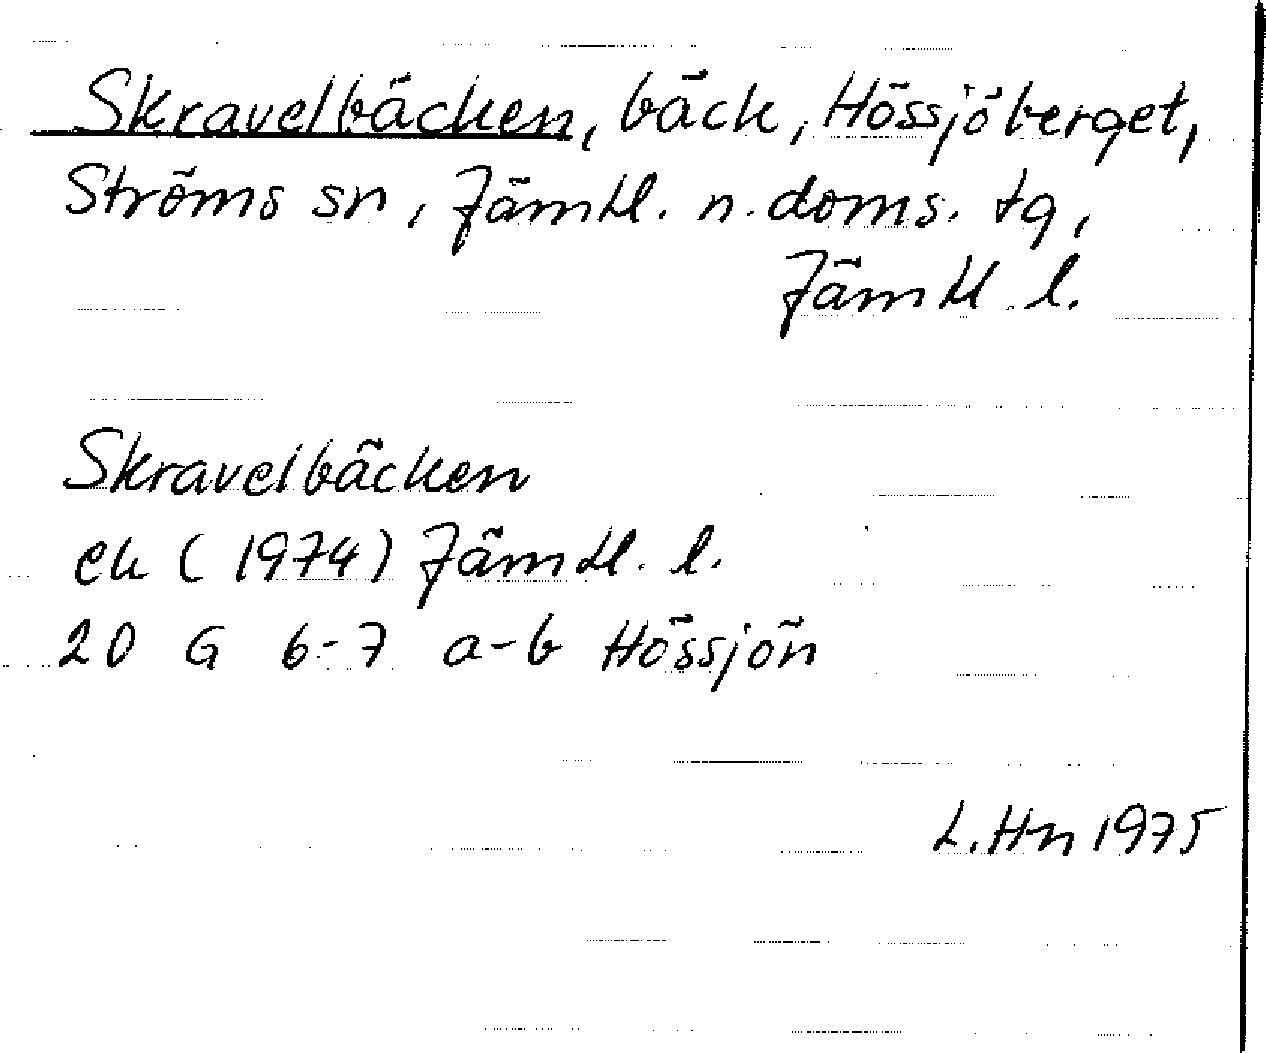 Skravelbäcken, bäck, Hössjöberget,
Ströms sn, Jämtl. n. doms. tg,
Jämtl. l.
Skravelbäcken
ek (1974) Jämtl. l.
20 G 6-7 a-b Hössjön
L. Hn 1975